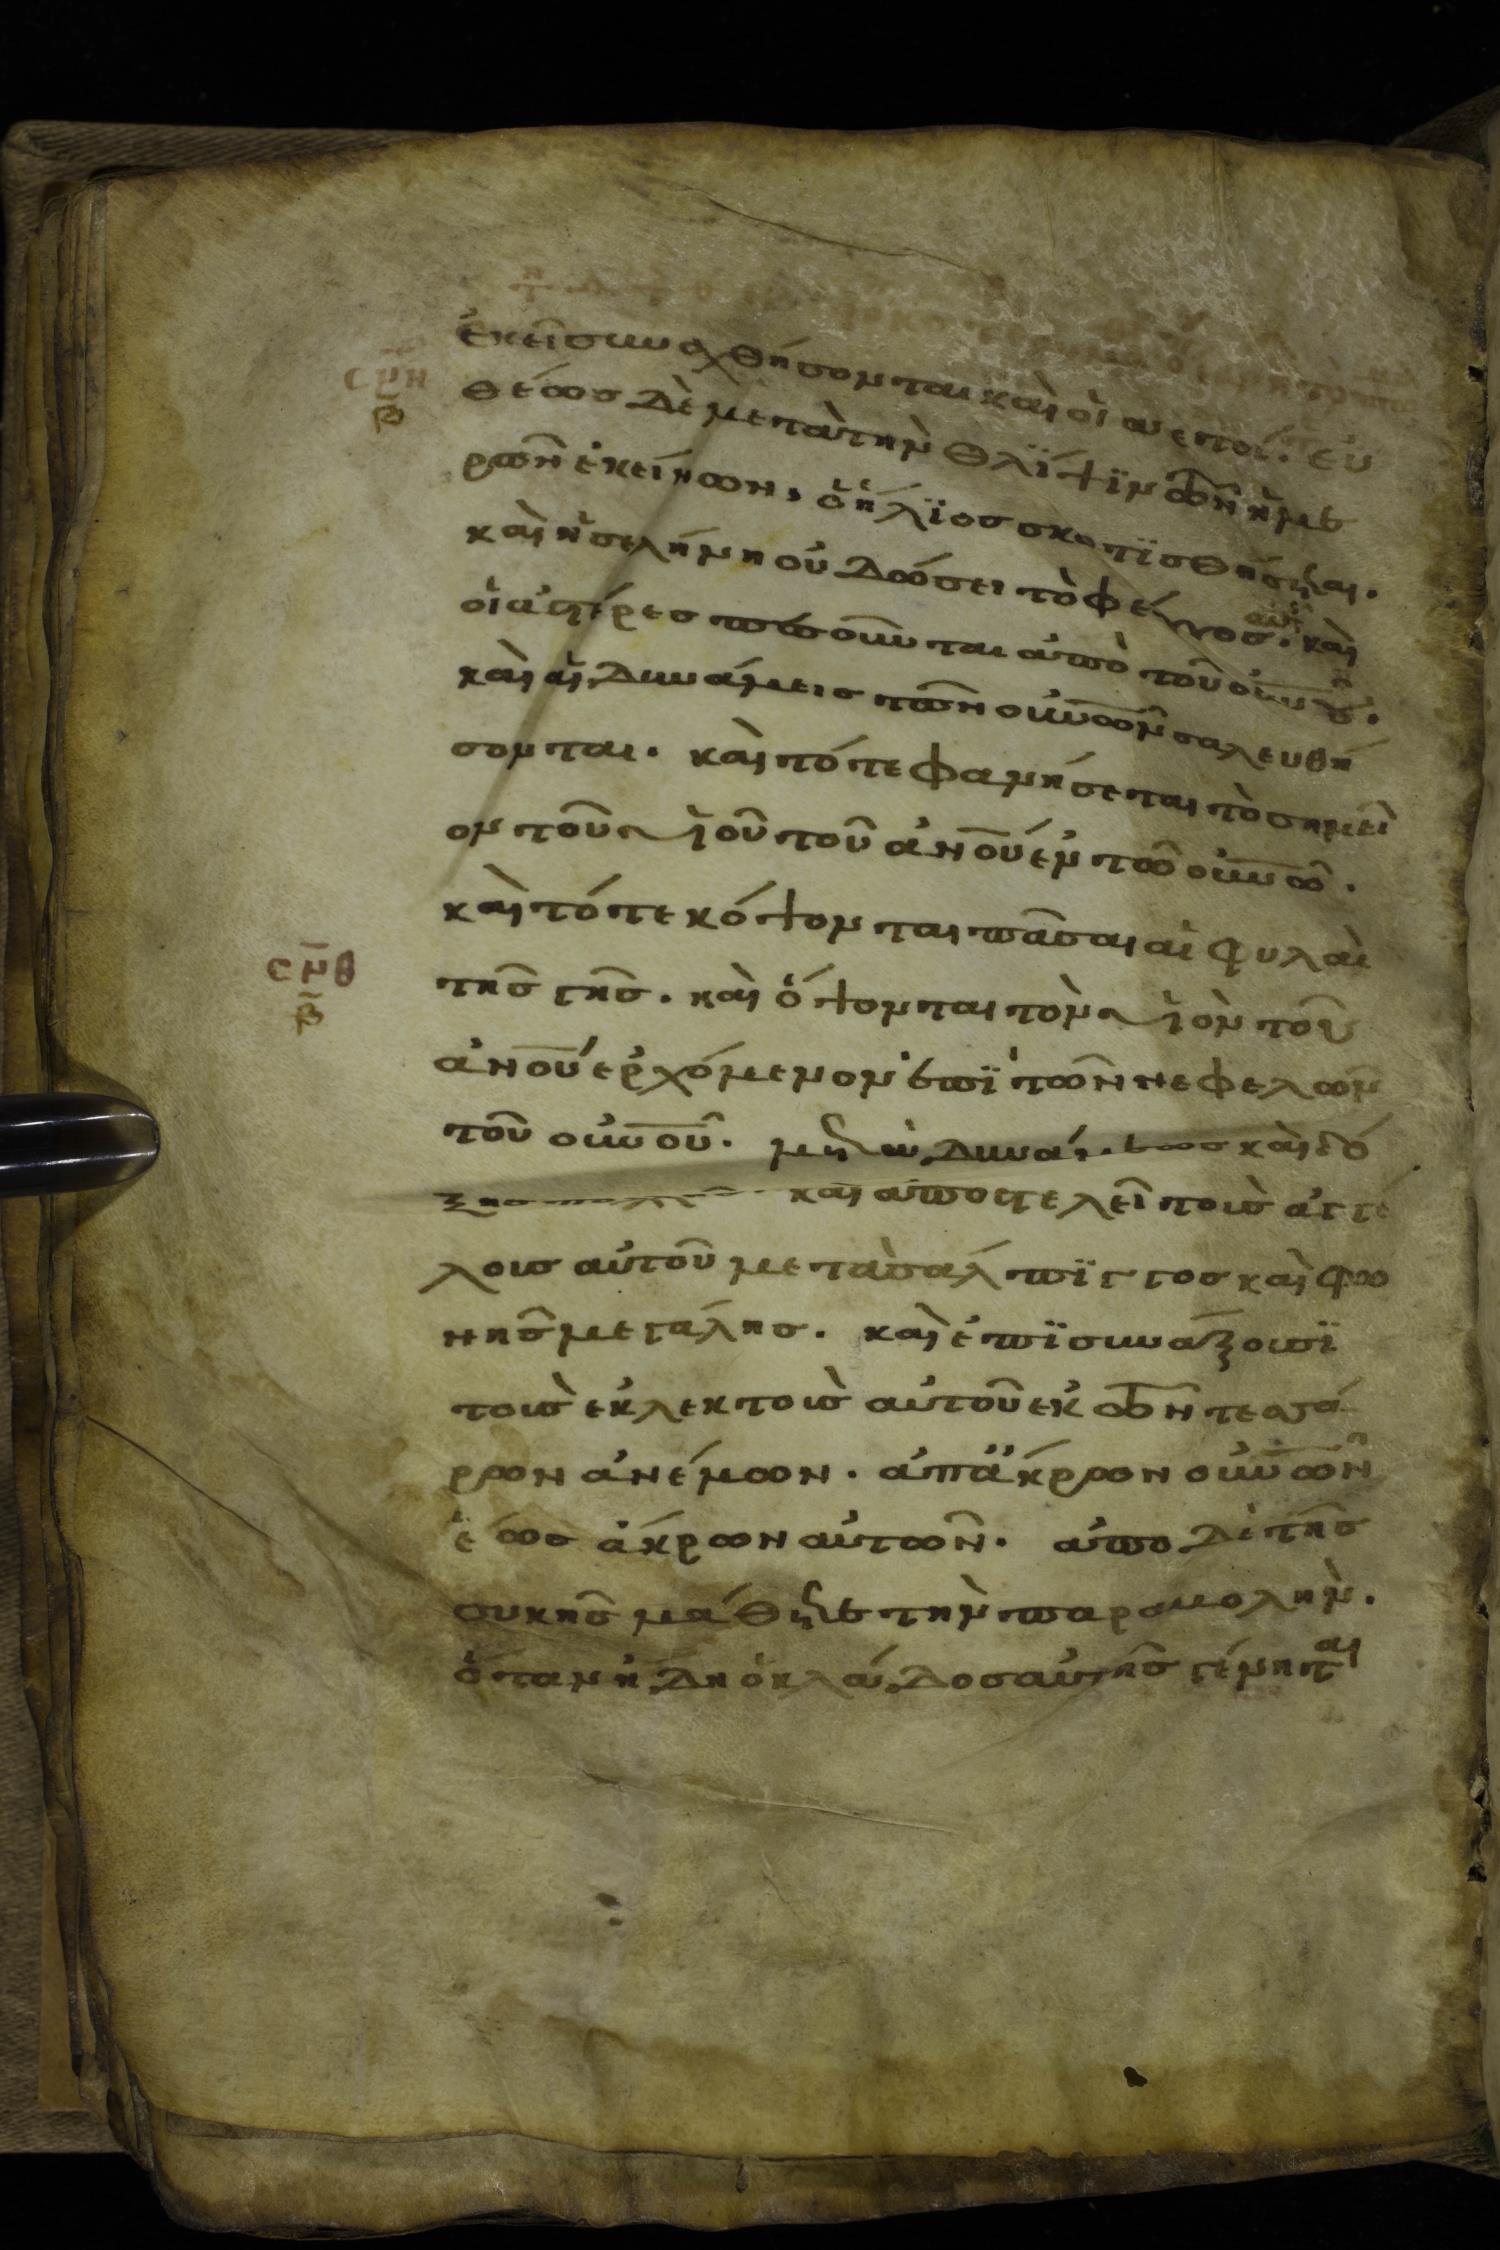 ἐκεῖ συναχθήσονται καὶ οἱ αετοί. εὐ
σμη
β
θέως δὲ μετὰ τὴν θλίψϊν τῶν ἡμε
ρῶν ἐκείνων, ὁ ἥλϊος σκοτϊσθήσεται.
καὶ ἡ σελήνη οὐ δώσει τὸ φέγγος αὐτῆς. καὶ
οἱ ἀστέρες πεσοῦνται ἀπὸ τοῦ οὐνοῦ.
καὶ αἱ δυνάμεις τῶν οὐνῶν σαλευθή
σονται. καὶ τότε φανήσεται τὸ σημεῖ
ον τοῦ υἱοῦ τοῦ ἀνοῦ ἐν τῶ οὐνῶ.
καὶ τότε κόψονται πᾶσαι αἱ φυλαὶ
σμθ
β
τῆς γῆς. καὶ ὄψονται τὸν υἱὸν τοῦ
ἀνοῦ ἐρχόμενον ἐπὶ τῶν νεφελῶν
τοῦ οὐνοῦ. μετὰ δυνάμεως καὶ δό
ξης καὶ ἀποστελεῖ τοὺς ἀγγέ
λους αὐτοῦ μετὰ σάλπϊγγος καὶ φω
νῆς μεγάλης. καὶ ἐπϊσυνάξουσϊ
τοὺς ἐκλεκτοὺς αὐτοῦ ἐκ τῶν τεσσά
ρων ἀνέμων. ἀπ ἄκρων οὐνῶν
ἕως ἄκρων αὐτῶν. ἀπο δὲ τῆς
συκῆς μάθετε τὴν παραβολήν.
ὅταν ἤδη ὁ κλάδος αὐτῆς γένηται